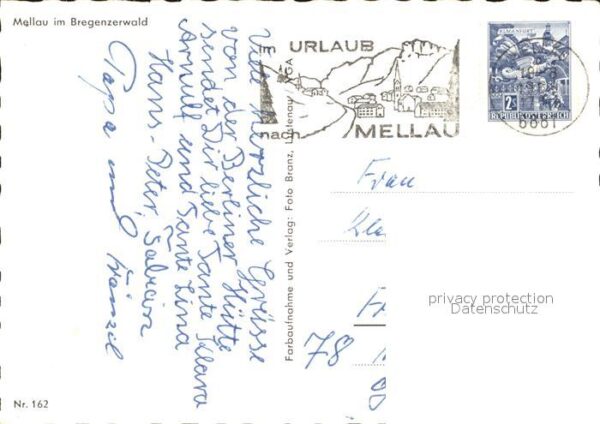 Mellau im Bregenzerwald
Viele herzliche Grüsse
von der Berliner Hütte
sendet Dir liebe Tante Klara
Arnulf und Tante Lina
Hans-Peter, Fabian
Papa und
Farbaufnahme und Verlag: Foto Branz, Lustenau
URLAUB
nach MELLAU
KLAGENFURT
2S
REPUBLIK ÖSTERREICH
6881
Frau
78
privacy protection
Datenschutz
Nr. 162